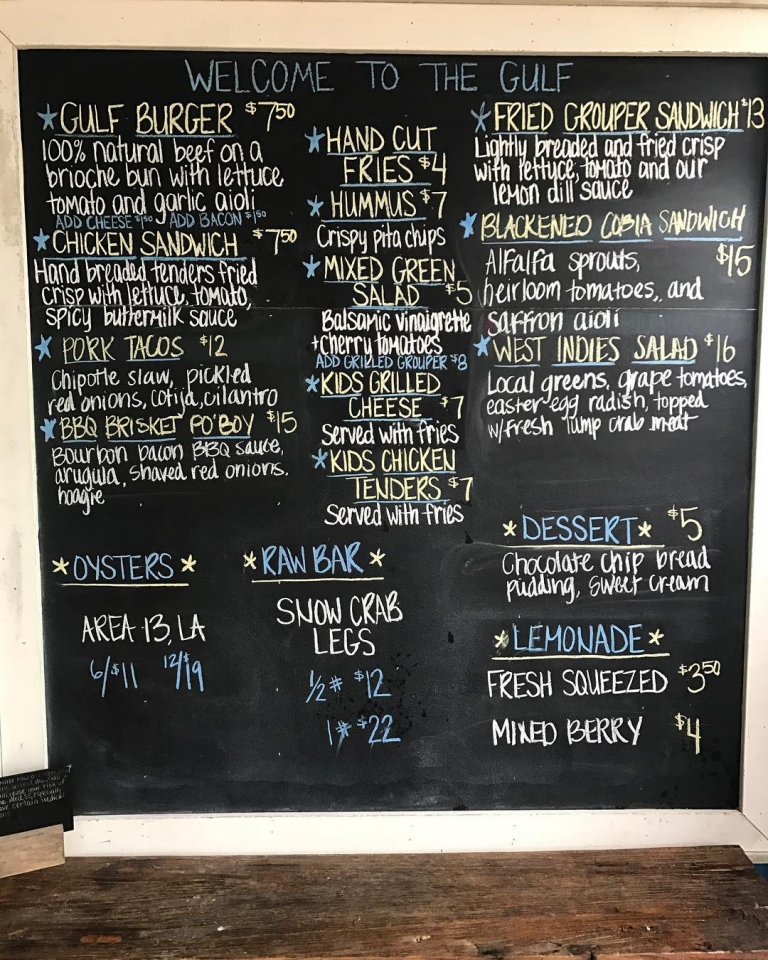 WELCOME TO THE GULF
GULF BURGER $7.50
100% natural beef on a
brioche bun with lettuce
tomato and garlic aioli
ADD CHEESE $1.50 ADD BACON $1.50
CHICKEN SANDWICH $7.50
Hand breaded tenders fried
crisp with lettuce, tomato,
spicy buttermilk sauce
PORK TACOS $12
Chipotle slaw, pickled
red onions, cotija, cilantro
BBQ BRISKET PO'BOY $15
Bourbon bacon BBQ sauce,
arugula, shaved red onions.
hoagie
HAND CUT
FRIES $4
HUMMUS $7
Crispy pita chips
MIXED GREEN
SALAD $5
Balsamic vinaigrette
+cherry tomatoes
ADD GRILLED GROUPER $8
KIDS GRILLED
CHEESE $7
Served with fries
KIDS CHICKEN
TENDERS $7
Served with fries
FRIED GROUPER SANDWICH $13
Lightly breaded and fried crisp
with lettuce, tomato and our
lemon dill sauce
BLACKENED COBIA SANDWICH
$15
Alfalfa sprouts,
heirloom tomatoes, and
saffron aioli
WEST INDIES SALAD $16
Local greens, grape tomatoes,
easter egg radish, topped
w/fresh lump crab meat
*OYSTERS*
AREA 13, LA
6/$11 12/$19
*RAW BAR*
SNOW CRAB
LEGS
1/2# $12
1# $22
*DESSERT* $5
Chocolate chip bread
pudding, sweet cream
*LEMONADE*
FRESH SQUEEZED $3.50
MIXED BERRY $4